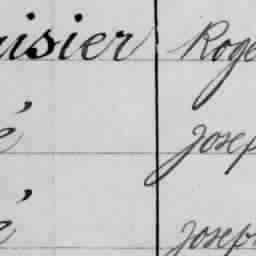 isier Roge
é Josep
é Josep